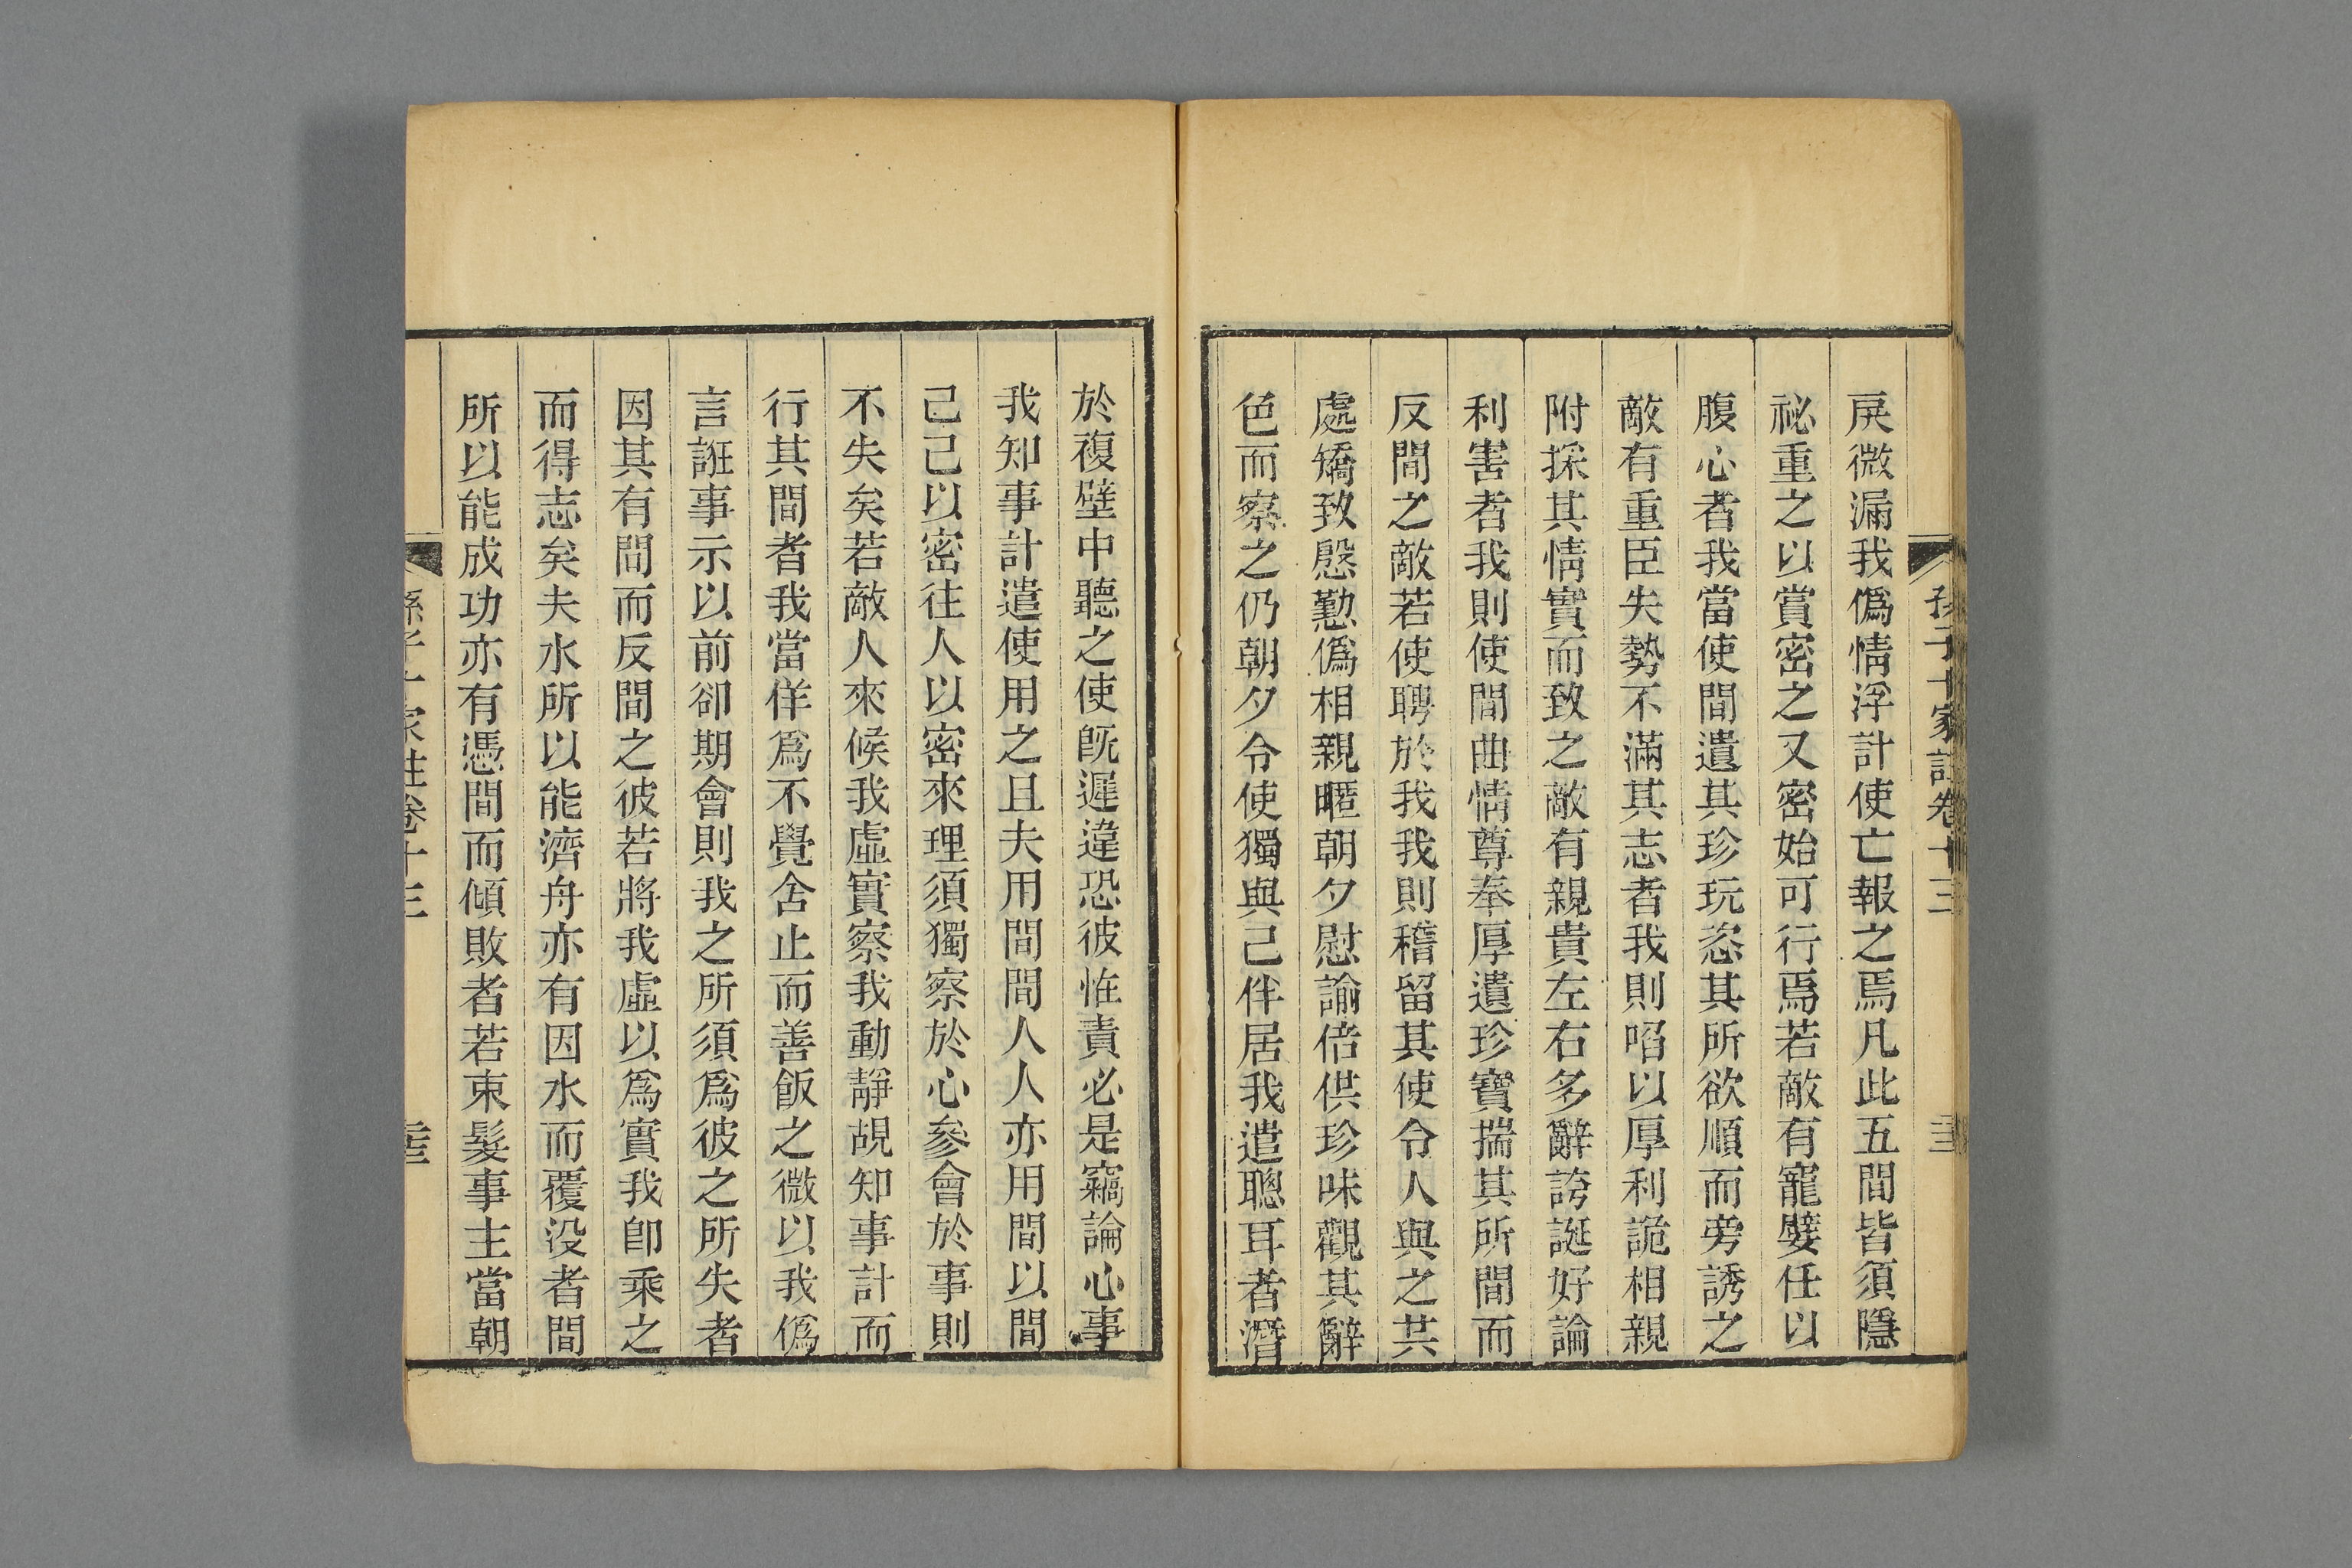 孫子十家註卷十三
戻微漏我僞情浮計使亡報之焉凡此五間皆須隱
祕重之以賞密之又密始可行焉若敵有寵嬖任以
腹心者我當使間遺其珍玩恣其所欲順而旁誘之
敵有重臣失勢不滿其志者我則啗以厚利詭相親
附採其情實而致之敵有親貴左右多辭誇誕好論
利害者我則使間曲情尊奉厚遺珍寶揣其所間而
反間之敵若使聘於我我則稽留其使令人與之共
處矯致慇懃僞相親暱朝夕慰諭倍供珍味觀其辭
色而察之仍朝夕令使獨與己伴居我遣聰耳者潛
於複壁中聽之使旣遲違恐彼怪責必是竊論心事
我知事計遣使用之且夫用間間人人亦用間以間
己己以密往人以密來理須獨察於心參會於事則
不失矣若敵人來候我虛實察我動靜覘知事計而
行其間者我當佯爲不覺舍止而善飯之微以我僞
言誑事示以前卻期會則我之所須爲彼之所失者
因其有間而反間之彼若將我虛以爲實我卽乘之
而得志矣夫水所以能濟舟亦有因水而覆没者間
所以能成功亦有憑間而傾敗者若束髮事主當朝
孫子十家註卷十三